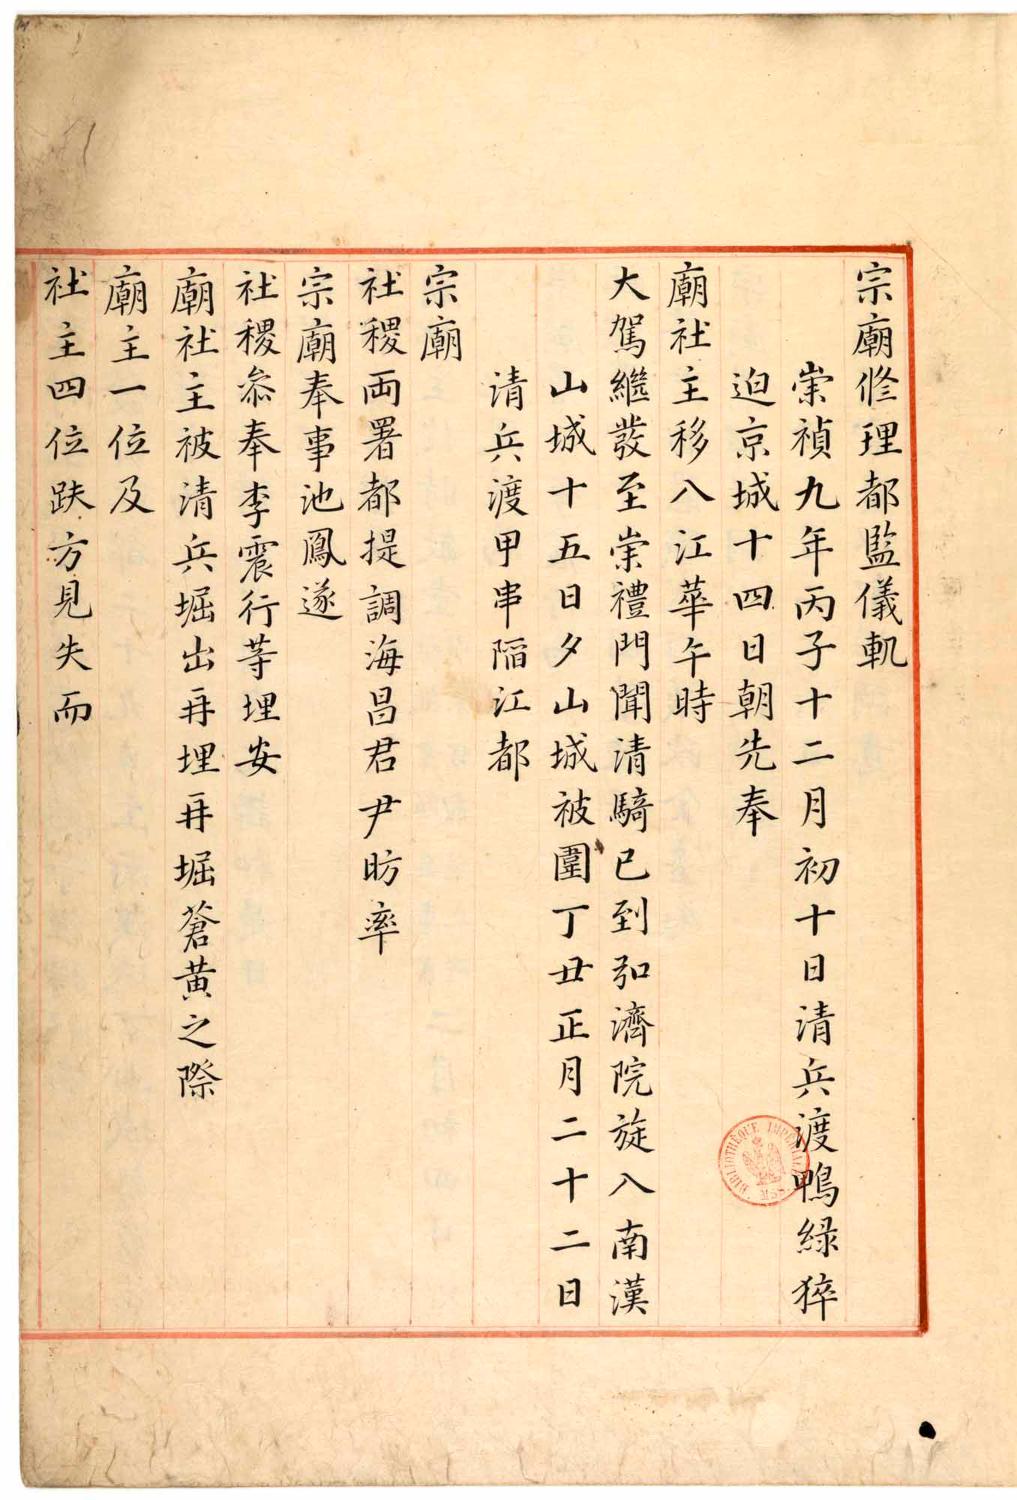 宗廟修理都監儀軌
崇禎九年丙子十二月初十日清兵渡鴨綠猝
迫京城十四日朝先奉
廟社主移入江華午時
大駕繼發至崇禮門聞清騎已到弘濟院旋入南漢
山城十五日夕山城被圍丁丑正月二十二日
清兵渡甲串陷江都
宗廟
社稷兩署都提調海昌君尹昉率
宗廟奉事池鳳遂
社稷叅奉李震行等埋安
廟社主被清兵堀出再埋再堀蒼黃之際
廟主一位及
社主四位趺方見失而
BIBLIOTHÈQUE IMPÉRIALE MSS.